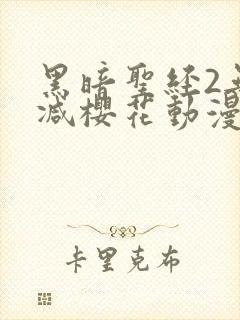 黑暗聖経2
減櫻花動漫
卡里克布